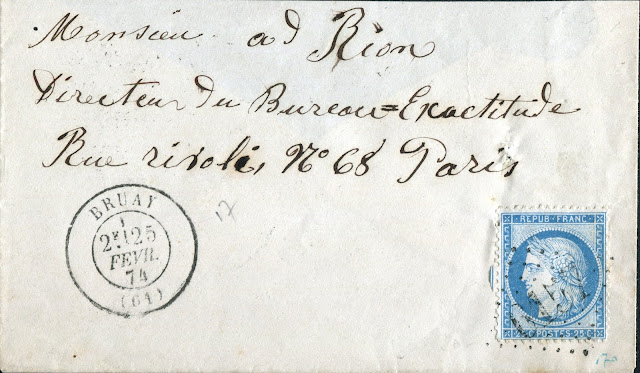 Monsieur ad Rion
Directeur du Bureau=Exactitude
Rue rivoli, No 68 Paris
BRUAY
2E 25
FEVR.
74
(61)
17
REPUB. FRANC.
25 C POSTES 25 C
170